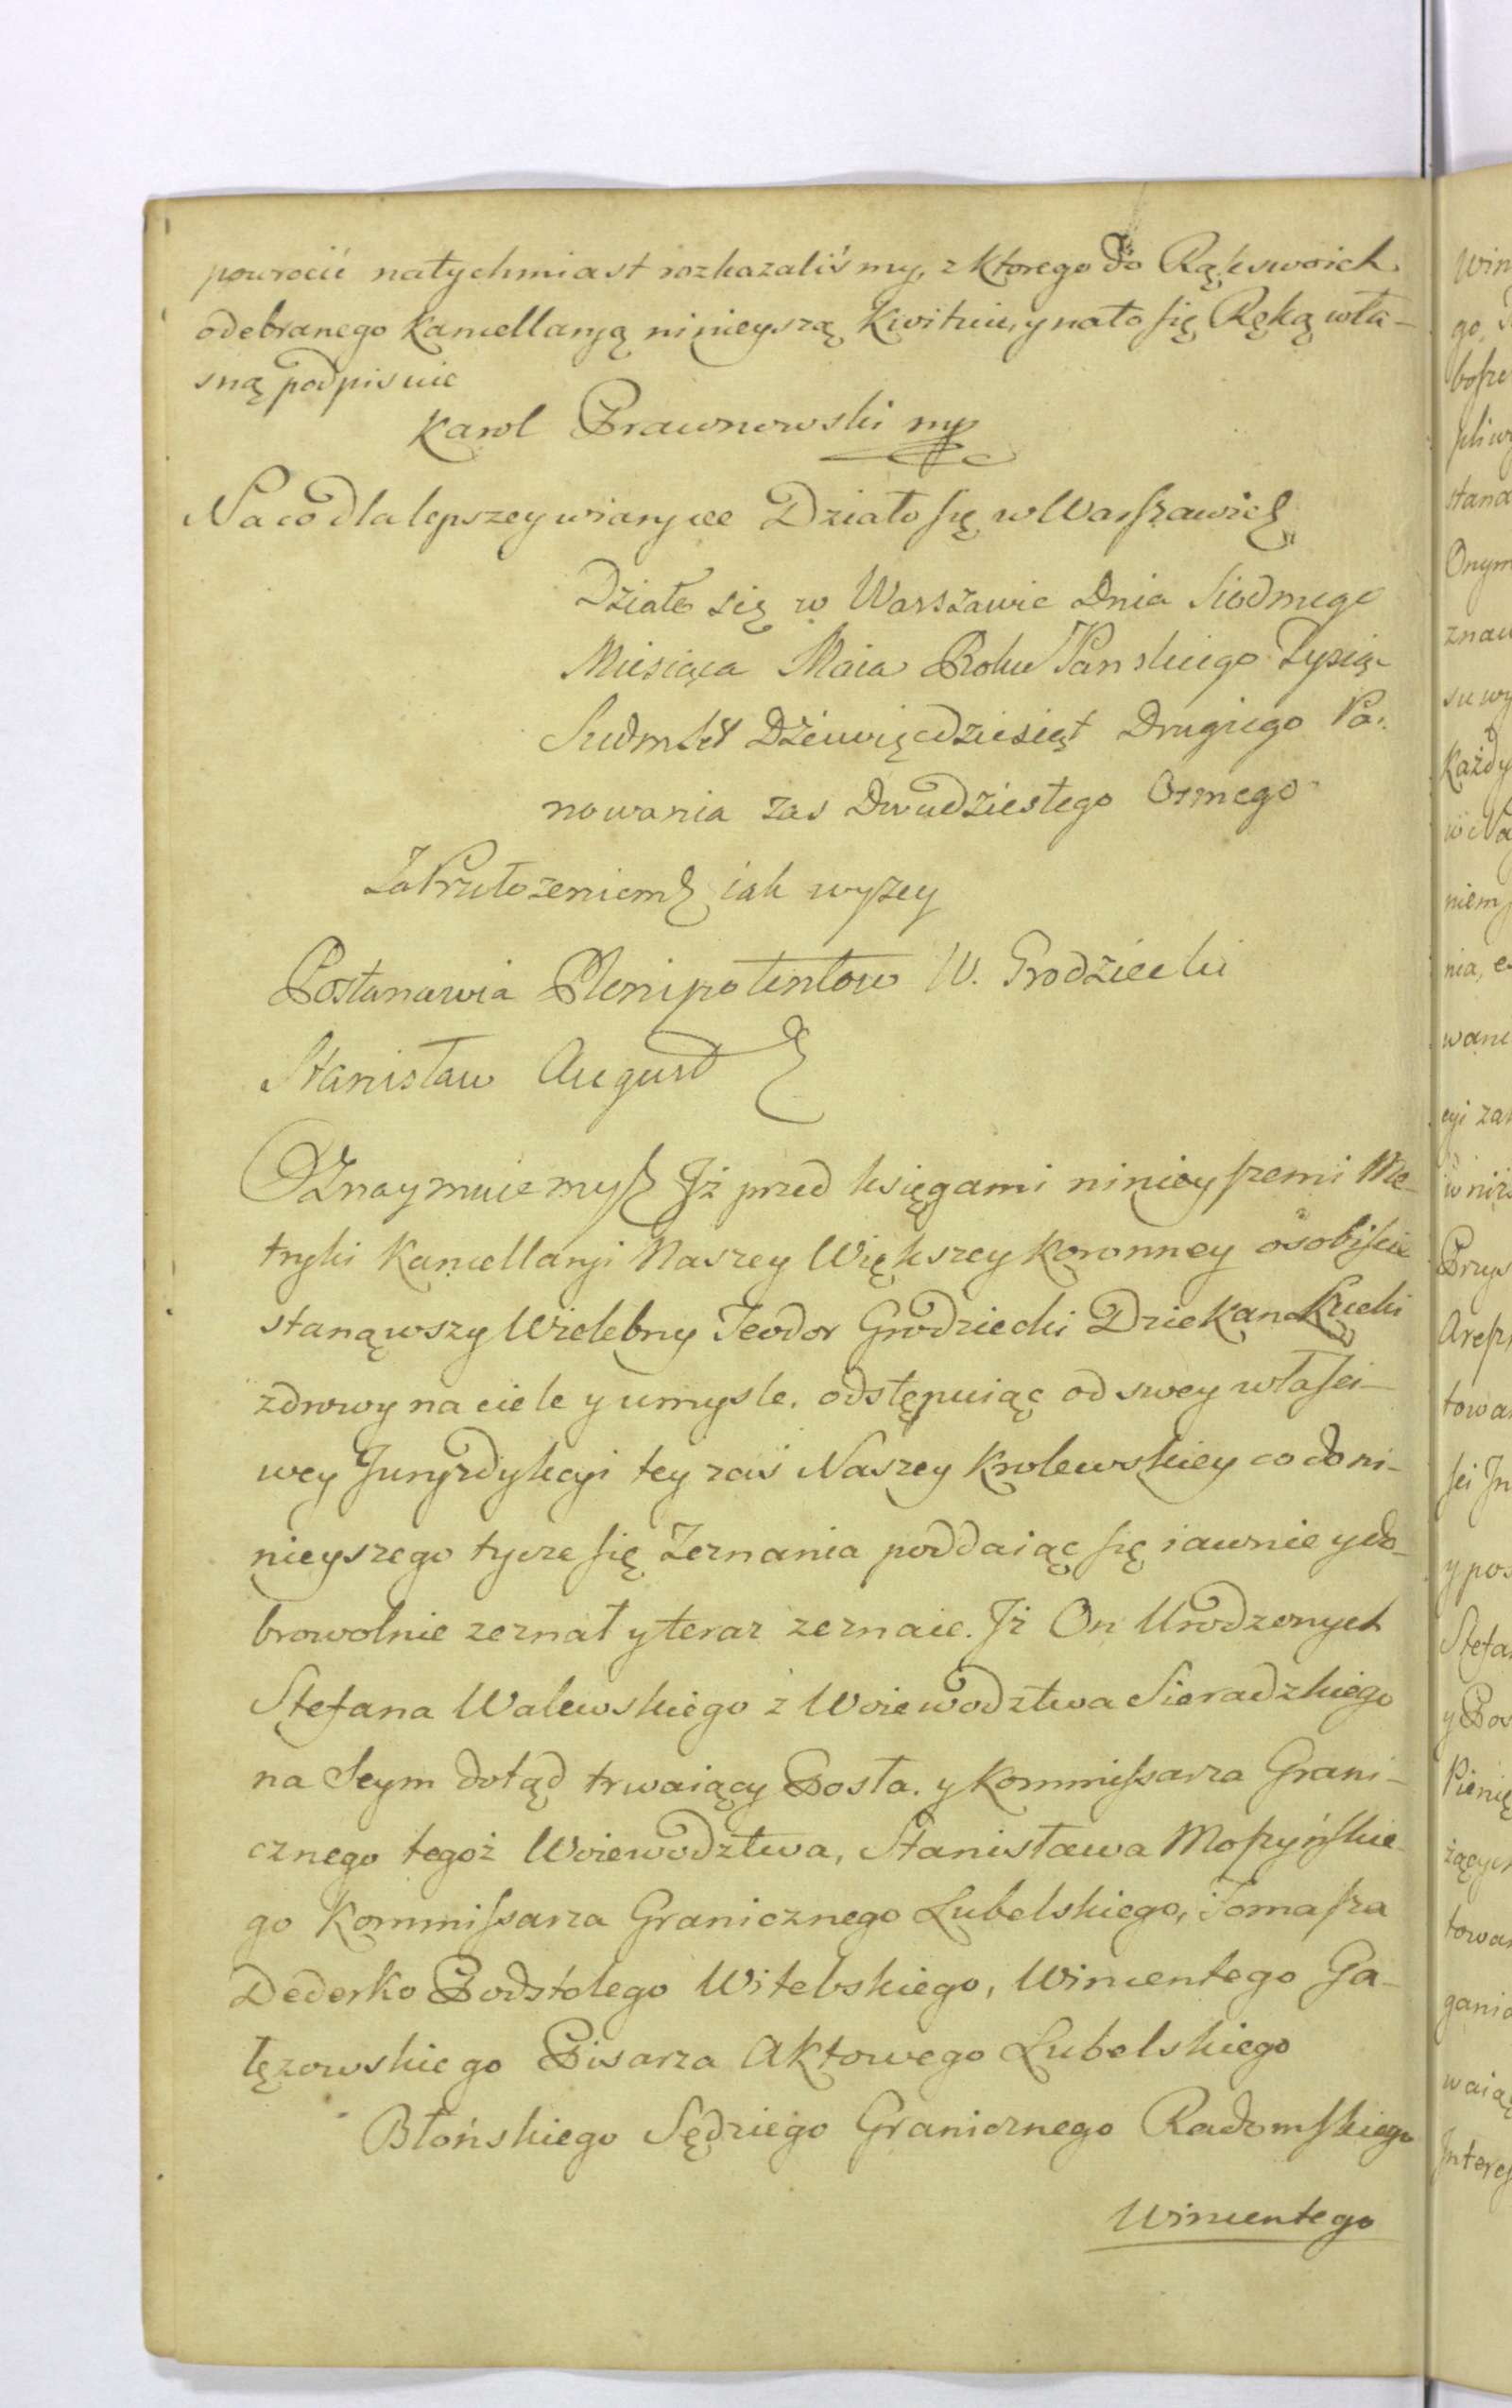 powrocić natychmiast rozkazaliśmy, z ktorego do Rąk swoich
odebranego Kancellaryą ninieyszą Kwituie, y na to się Ręką wła-
sną podpisuie
Karol Prawnowski mp
Na co dla lepszey wiary etc Działo się w Warszawie
Działo się w Warszawie Dnia Siodmego
Miesiąca Maia Roku Panskiego Tysiąc
Siedmset Dziewięcdziesiąt Drugiego Pa-
nowania zas Dwudziestego Osmego
Za Przełozeniem iak wyzey
Postanawia Plenipotentow W. Grodziecki
Stanisław August
Oznaymuiemy Jż przed księgami ninieyszemi Me-
tryki Kancellaryi Naszey Większey Koronney osobiscie
stanąwszy Wielebny Teodor Grodziecki Dziekan Łucki
zdrowy na ciele y umysle. odstępuiąc od swey własci-
wey Juryzdykcyi tey zaś Naszey Krolewskiey co do ni-
nieyszego tycze się Zeznania poddaiąc się iawnie y do-
browolnie zeznał y teraz zeznaie. Jż On Urodzonych
Stefana Walewskiego z Woiewodztwa Sieradzkiego
na Seym dotąd trwaiący Posła. y Kommissarza Grani-
cznego tegoż Woiewodztwa, Stanisława Moszyńskie-
go Kommissarza Granicznego Lubelskiego, Tomasza
Dederko Podstolego Witebskiego, Wincentego Ga-
łęzowskiego Pisarza Aktowego Lubelskiego
Błońskiego Sędziego Granicznego Radomskiego
Wincentego